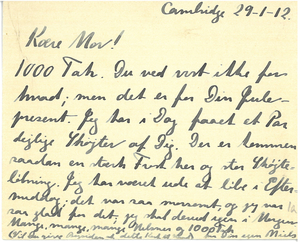 Cambridge 29-1-12.
Kære Mor!
1000 Tak. Du ved vist ikke for
hvad; men det er for Din Jule-
present. Jeg har i Dag faaet et Par
dejlige Skøjter af Dig. Der er kommen
saadan en stærk Frost her og stor Skøjte-
løbning. Jeg har været ude at løbe i Efter-
middag; det var saa morsomt, og jeg var
saa glad for det; jeg skal derud igen i Morgen
Mange, mange, mange Hilsner og 1000 Tak